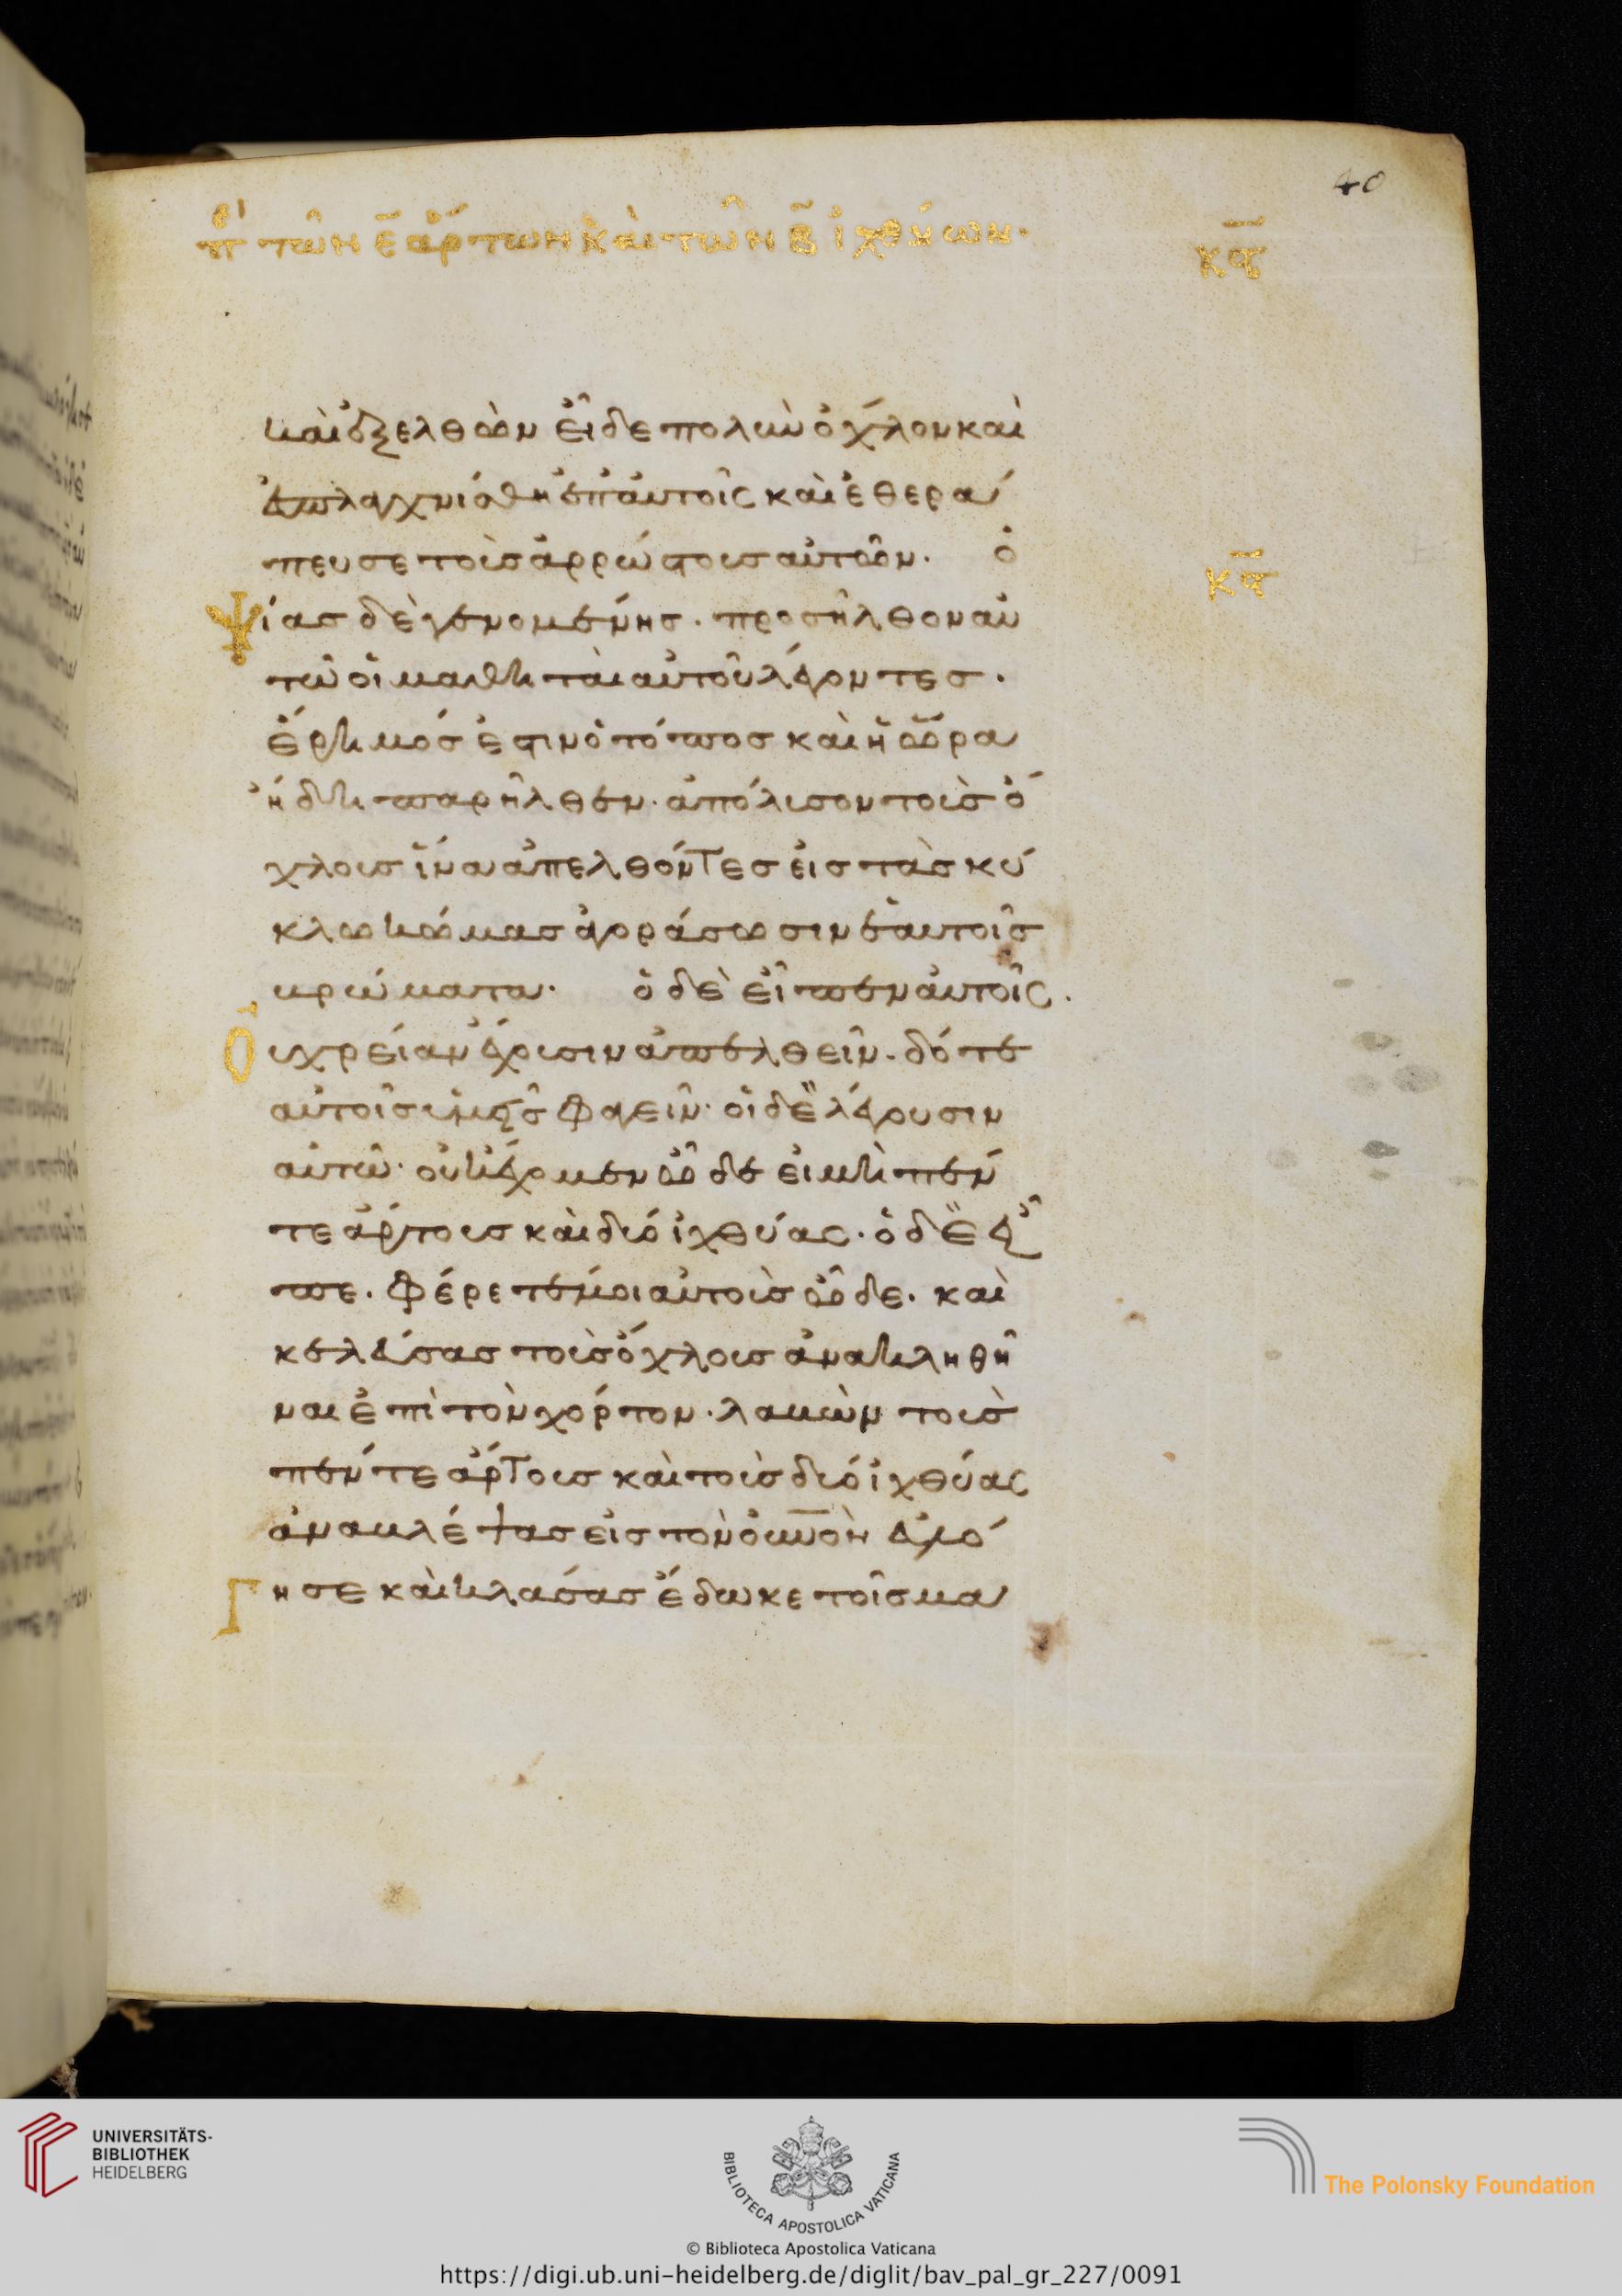 40
πε̣ρ τῶν ε̅ ἄρτων καὶ τῶν β̅ ἰχθύων·
κς̅
καὶ ἐξελθὼν εἶδε πολὺν ὄχλον καὶ
ἐσπλαγχνίσθη ἐπ' αυτοῖς καὶ ἐθερά
πευσε τοὺσ ἀρρώστουσ αὐτῶν. ὀ
κς̅
Ψίασ δὲ γενομένησ· προσῆλθον αὐ
τῶ οἱ μαθηταὶ αὐτοῦ λέγοντεσ·
ἔρημόσ ἐστιν ὁ τόποσ καὶ ἡ ὥρα
ἤδη παρῆλθεν· ἀπόλυσον τοὺσ ὄ
χλουσ ἵνα ἀπελθόντεσ εἰσ τὰσ κύ
κλω κώμασ ἀγοράσωσιν ἑαυτοῖσ
βρώματα· ὁ δὲ εἶπεν αὐτοῖς·
Οὐ χρείαν ἔχουσιν ἀπελθεῖν· δότε
αὐτοῖσ ὑμεῖσ φαγεῖν· οἱ δὲ λέγουσιν
αὐτῶ· οὐκ ἔχομεν ὧδε εἰ μὴ πέν
τε ἄρτουσ καὶ δύο ἰχθύας· ὁ δὲ εἶ
πε· φέρετέ μοι αὐτοὺσ ὧδε· καὶ
κελεύσασ τοὺσ ὄχλουσ ἀνακληθῆ
ναι ἐπὶ τὸν χόρτον· λαβὼν τοὺσ
πέντε ἄρτουσ καὶ τοὺσ δύο ἰχθύας
ἀναβλέψασ εἰσ τὸν οὐ̅νὸν εὐλό
Γησε καὶ κλάσασ ἔδωκε τοῖσ μα
UNIVERSITÄTS-
BIBLIOTHEK
HEIDELBERG
BIBLIOTECA APOSTOLICA VATICANA
The Polonsky Foundation
© Biblioteca Apostolica Vaticana
https://digi.ub.uni-heidelberg.de/diglit/bav_pal_gr_227/0091